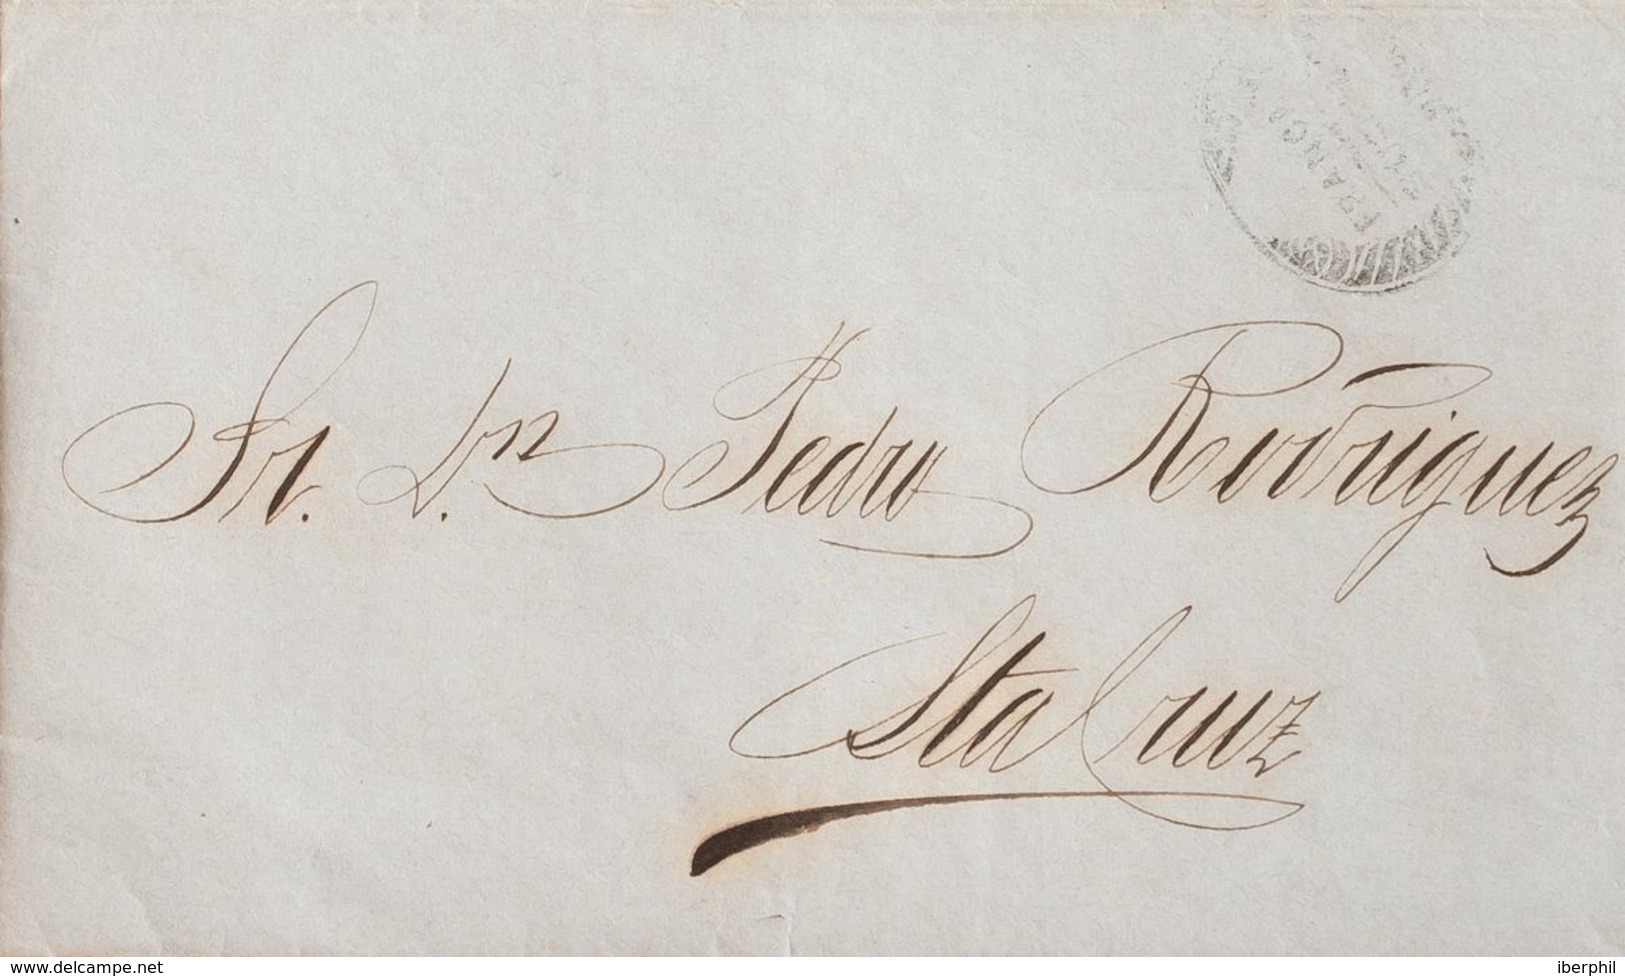 FRANCA
Sr. D.n Pedro Rodriguez
Sta Cruz
www.delcampe.net
iberphil